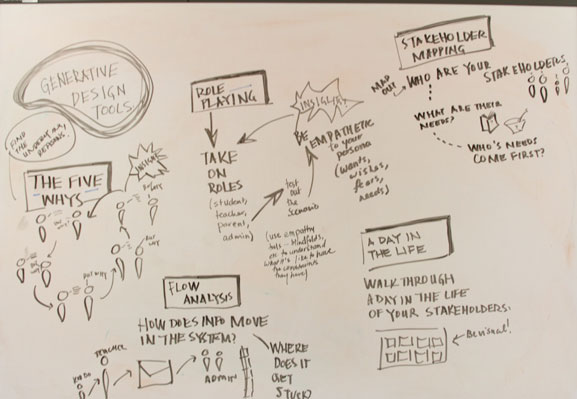 GENERATIVE
DESIGN
TOOLS.
FIND
THE UNDERLYING
REASONS
THE FIVE
WHYS
INSIGHT
BUT WHY
BUT WHY
BUT WHY
ROLE
PLAYING
TAKE
ON
ROLES
(student,
teacher,
parent,
admin)
test
out
the
scenario
INSIGHT
BE
EMPATHETIC
to your
persona
(wants,
wishes,
fears,
needs)
(use empathy
tools - blindfolds,
etc to understand
what it's like to have
the constraints
they have)
STAKEHOLDER
MAPPING
MAP
OUT
WHO ARE YOUR STAKEHOLDERS
WHAT ARE THEIR
NEEDS?
WHO'S NEEDS
COME FIRST?
A DAY IN
THE LIFE
WALK THROUGH
A DAY IN THE LIFE
OF YOUR STAKEHOLDERS.
Be visual!
FLOW
ANALYSIS
HOW DOES INFO MOVE
IN THE SYSTEM?
TEACHER
ADMIN
WHERE
DOES IT
GET
STUCK?